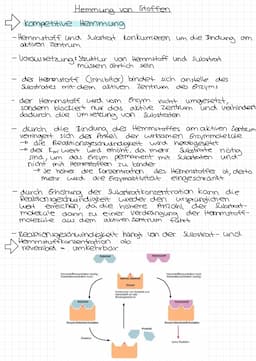 Hemmung von Stoffen
kompetitive Hemmung
- Hemmstoff und Substrat konkurrieren um die Bindung am
aktiven Zentrum
- Voraussetzung: Struktur von Hemmstoff und Substrat
müssen ähnlich sein
- der Hemmstoff (Inhibitor) bindet sich anstelle des
Substrates mit dem aktiven Zentrum des Enzyms
- der Hemmstoff wird vom Enzym nicht umgesetzt,
sondern blockiert nur das aktive Zentrum und verhindert
dadurch die Umsetzung von Substraten
- durch die Bindung des Hemmstoffes am aktiven Zentrum
verringert sich der Anteil der wirksamen Enzymmoleküle
→ die Reaktionsgeschwindigkeit wird herabgesetzt
→ der Km-Wert wird erhöht, da mehr Substrate nötig
sind, um das Enzym permanent mit Substraten und
nicht mit Hemmstoffen zu binden
→ Je höher die Konzentration des Hemmstoffes ist, desto
mehr wird die Enzymaktivität eingeschränkt
- durch Erhöhung der Substratkonzentration kann die
Reaktionsgeschwindigkeit wieder den ursprünglichen
Wert erreichen, da die höhere Anzahl der Substrat-
moleküle dann zu einer Verdrängung der Hemmstoff-
moleküle aus dem aktiven Zentrum führt
- Reaktionsgeschwindigkeit hängt von der Substrat- und
Hemmstoffkonzentration ab
reversibel = umkehrbar